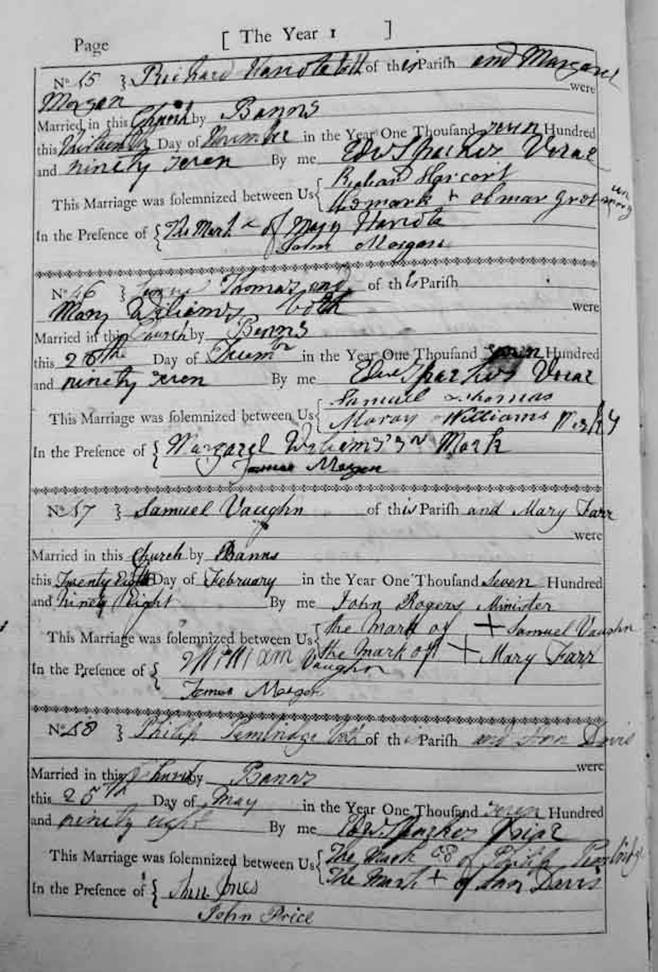 Page [ The Year 1 ]
No 15 } Richard of this Parish and Margaret
Morgan were
Married in this Church by Banns
this Day of November in the Year One Thousand seven Hundred
and ninety seven By me Edw Sparkes Vicar
This Marriage was solemnized between Us { Harcort
mark +
In the Presence of { The Mark x of Mary
John Morgan
No 46 } Thomas and of this Parish
Mary Wiliams both were
Married in this Church by Banns
this Day of in the Year One Thousand seven Hundred
and ninety seven By me Edw Sparkes Vicar
This Marriage was solemnized between Us { Samuel Thomas
Maray Williams
In the Presence of { Margaret Mark
James Morgan
No 57 } Samuel Vaughn of this Parish and Mary Farr
were
Married in this Church by Banns
this Twenty Eight Day of February in the Year One Thousand Seven Hundred
and Ninety Eight By me John Rogers Minister
This Marriage was solemnized between Us { the mark of + Samuel Vaughn
the mark off + Mary Farr
In the Presence of { William Vaughn
James Morgan
No 58 } Philip Pembridge both of this Parish and Ann Davis
were
Married in this Church by Banns
this 25th Day of May in the Year One Thousand seven Hundred
and ninety eight By me Edw. Sparkes
This Marriage was solemnized between Us { The Mark of Philip Pembridge
The Mark + of Ann Davis
In the Presence of { Jones
John Price